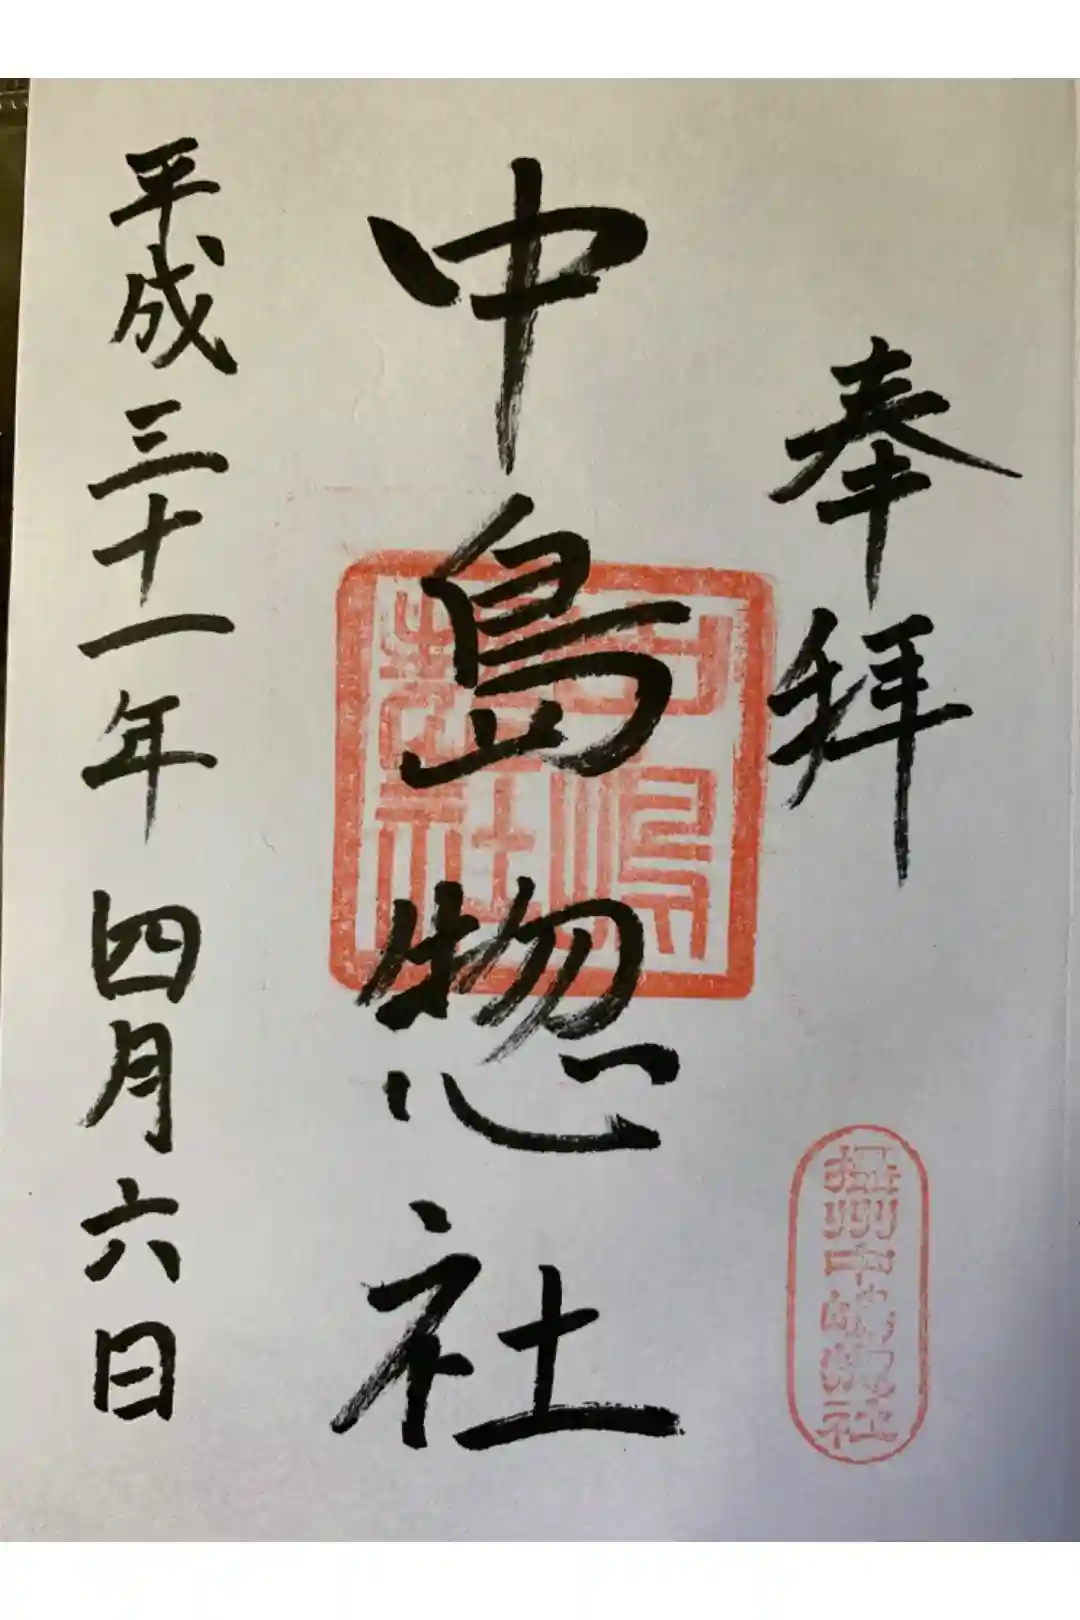 奉拝
中島惣社
平成三十一年四月六日
摂州中嶋惣社
中嶋惣社